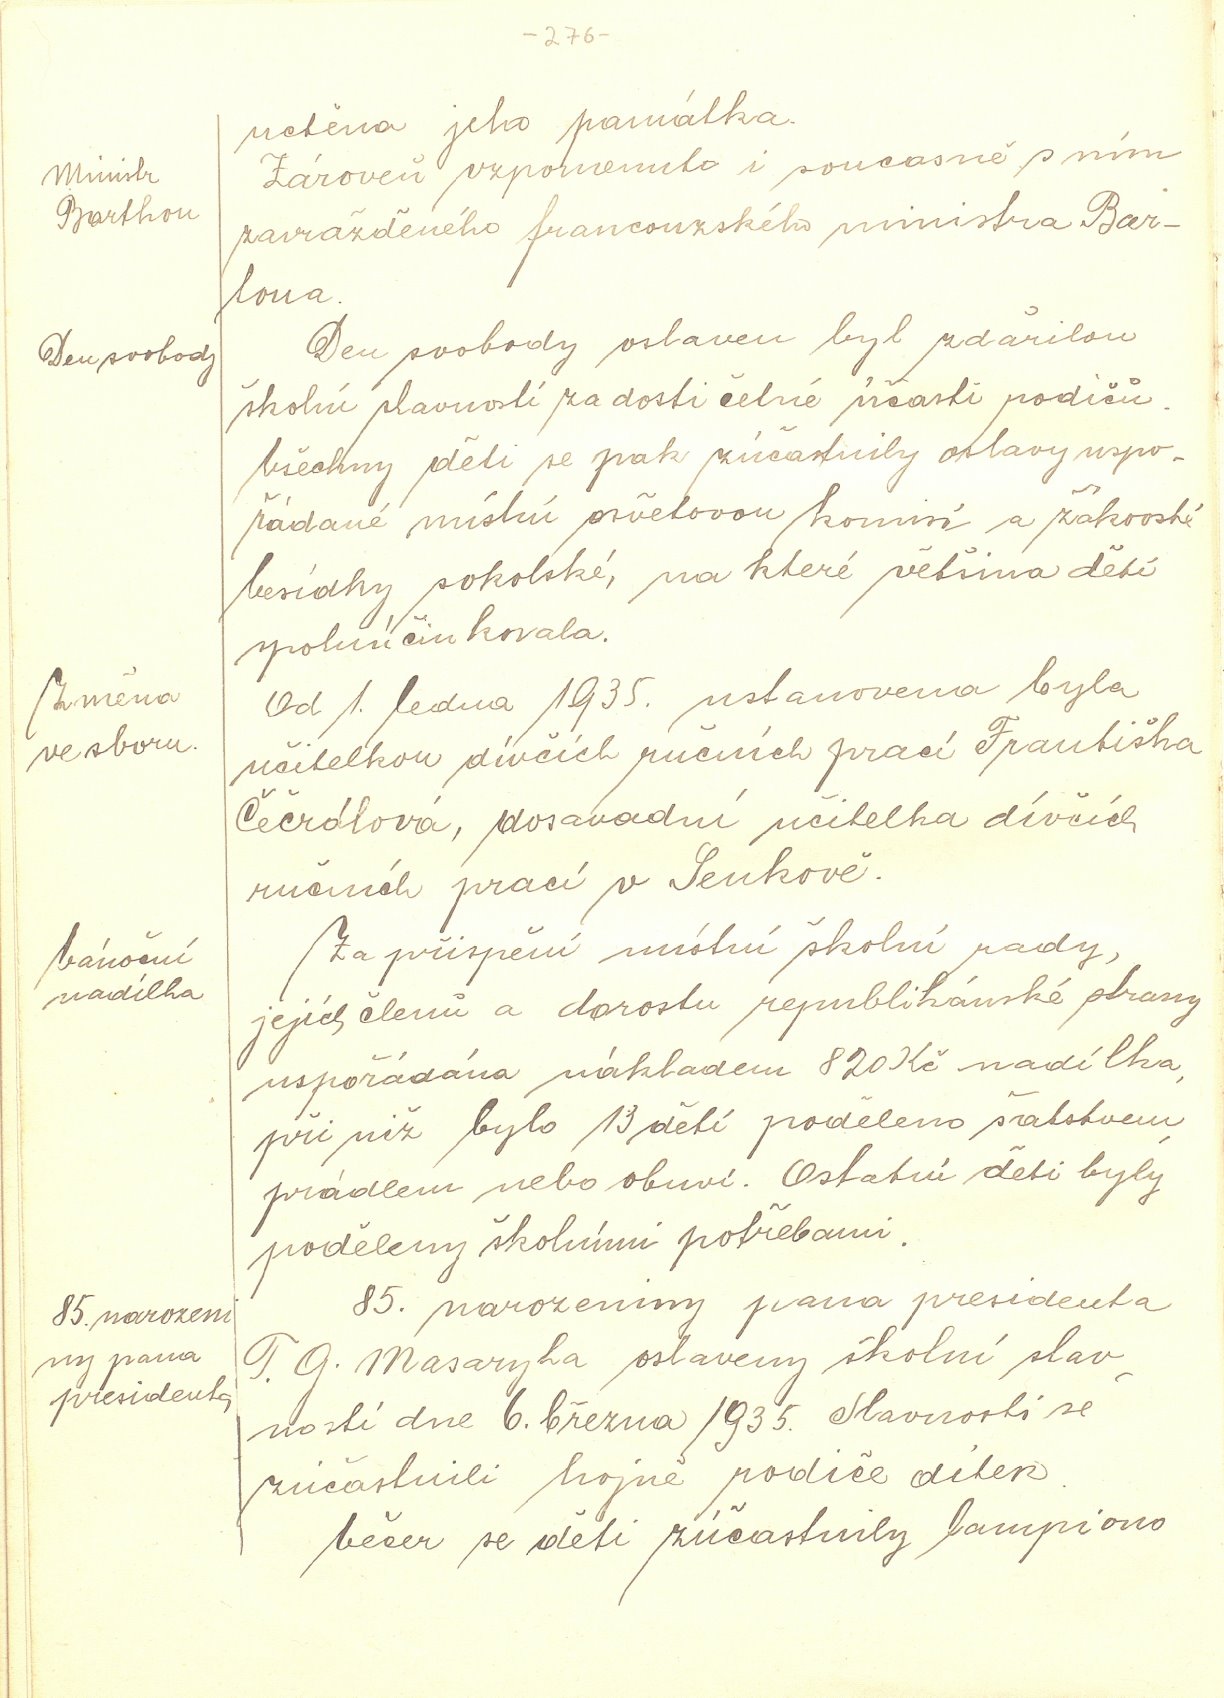 -276-
uctěna jeho památka.
Ministr
Barthou
Zároveň vzpomenuto i současně s ním
zavražděného francouzského ministra Bar-
toua.
Den svobody
Den svobody oslaven byl zdařilou
školní slavností za dosti četné účasti rodičů.
Všechny děti se pak zúčastnily oslavy uspo-
řádané místní osvětovou komisí a žákovské
besídky sokolské, na které většina dětí
spoluúčinkovala.
Změna
ve sboru.
Od 1. ledna 1935. ustanovena byla
učitelkou dívčích ručních prací Františka
Čečrdlová, dosavadní učitelka dívčích
ručních prací v Senkově.
Vánoční
nadílka
Za přispění místní školní rady,
jejích členů a dorostu republikánské strany
uspořádána nákladem 820 Kč nadílka,
při níž bylo 13 dětí poděleno šatstvem,
prádlem nebo obuví. Ostatní děti byly
poděleny školními potřebami.
85. narozeni
ny pana
presidenta
85. narozeniny pana presidenta
T. G. Masaryka oslaveny školní slav-
ností dne 6. března 1935. Slavnosti se
zúčastnili hojně rodiče dítek.
Večer se děti zúčastnily lampiono